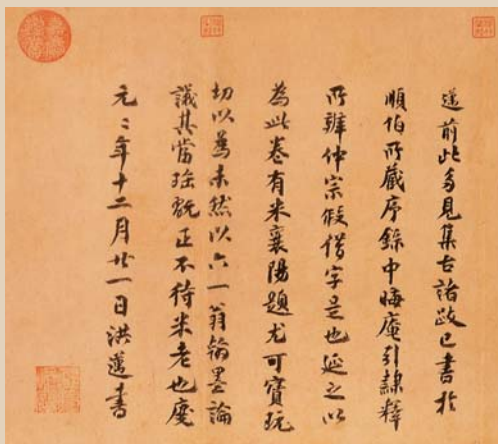 邁前此多見集古諸跋已書於
順伯所藏序錄中晦庵引隸釋
所辨仲宗假借字是也延之以
為此卷有米襄陽題尤可寶玩
切以為未然以六一翁翰墨論
議其當珍翫正不待米老也慶
元二年十二月廿一日洪邁書